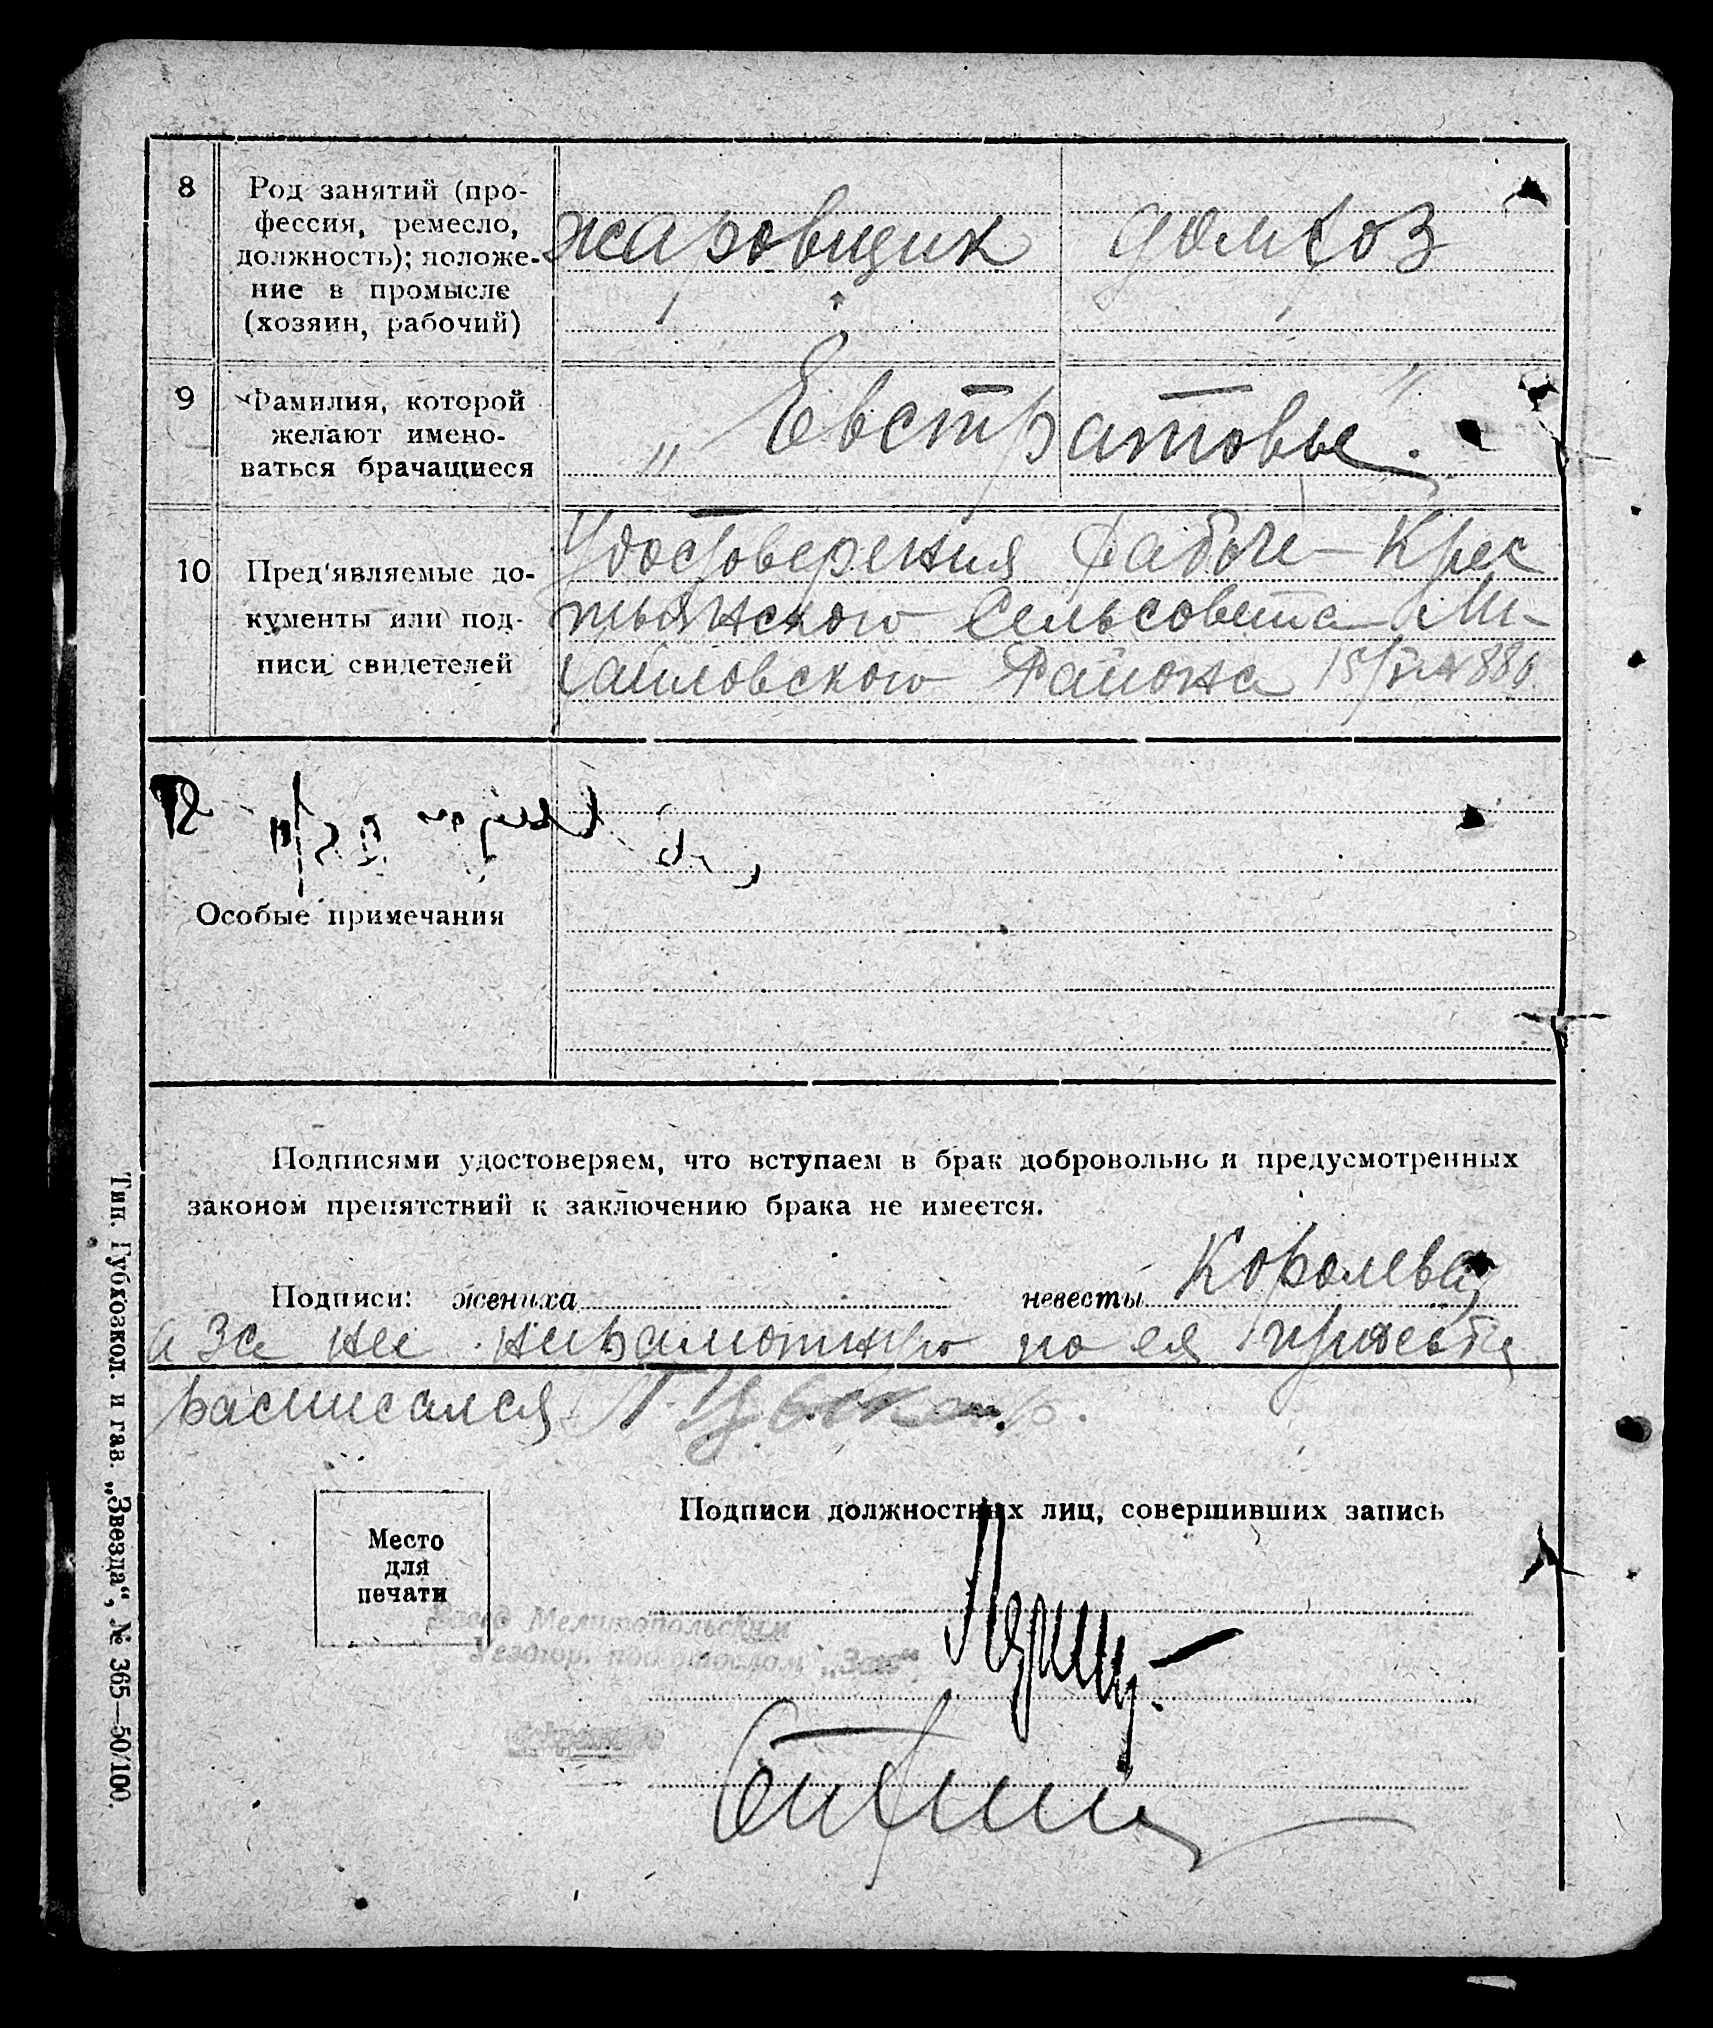 8 Род занятий (про-
фессия, ремесло,
должность); положе-
ние в промысле
(хозяин, рабочий)
жаровщик домхоз
9 Фамилия, которой
желают имено-
ваться брачащиеся
„ Евстратовы "
10 Пред'являемые до-
кументы или под-
писи свидетелей
Удостоверения Рабоче-Крес
тьянского Сельсовета Ми-
хайловского Района 15/
Особые примечания
Подписями удостоверяем, что вступаем в брак добровольно и предусмотренных
законом препятствий к заключению брака не имеется.
Подписи: жениха невесты Королева
а за не
расписался
Место
для
печати
Подписи должностных лиц, совершивших запись
Мелитопольским
Тип. Губхозкол. и газ. „Звезда“, № 365—50/100.